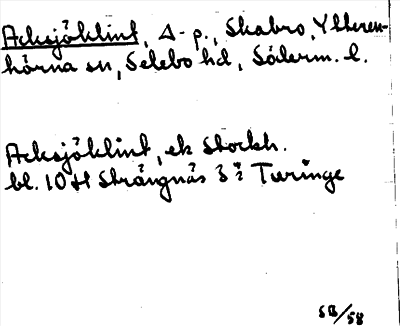 Acksjöklint, Δ-p., Skabro, Ytteren-
hörna sn, Selebo hd, Söderm. l.
Acksjöklint, ek Stockh.
bl. 10 H Strängnäs Turinge
SB/58